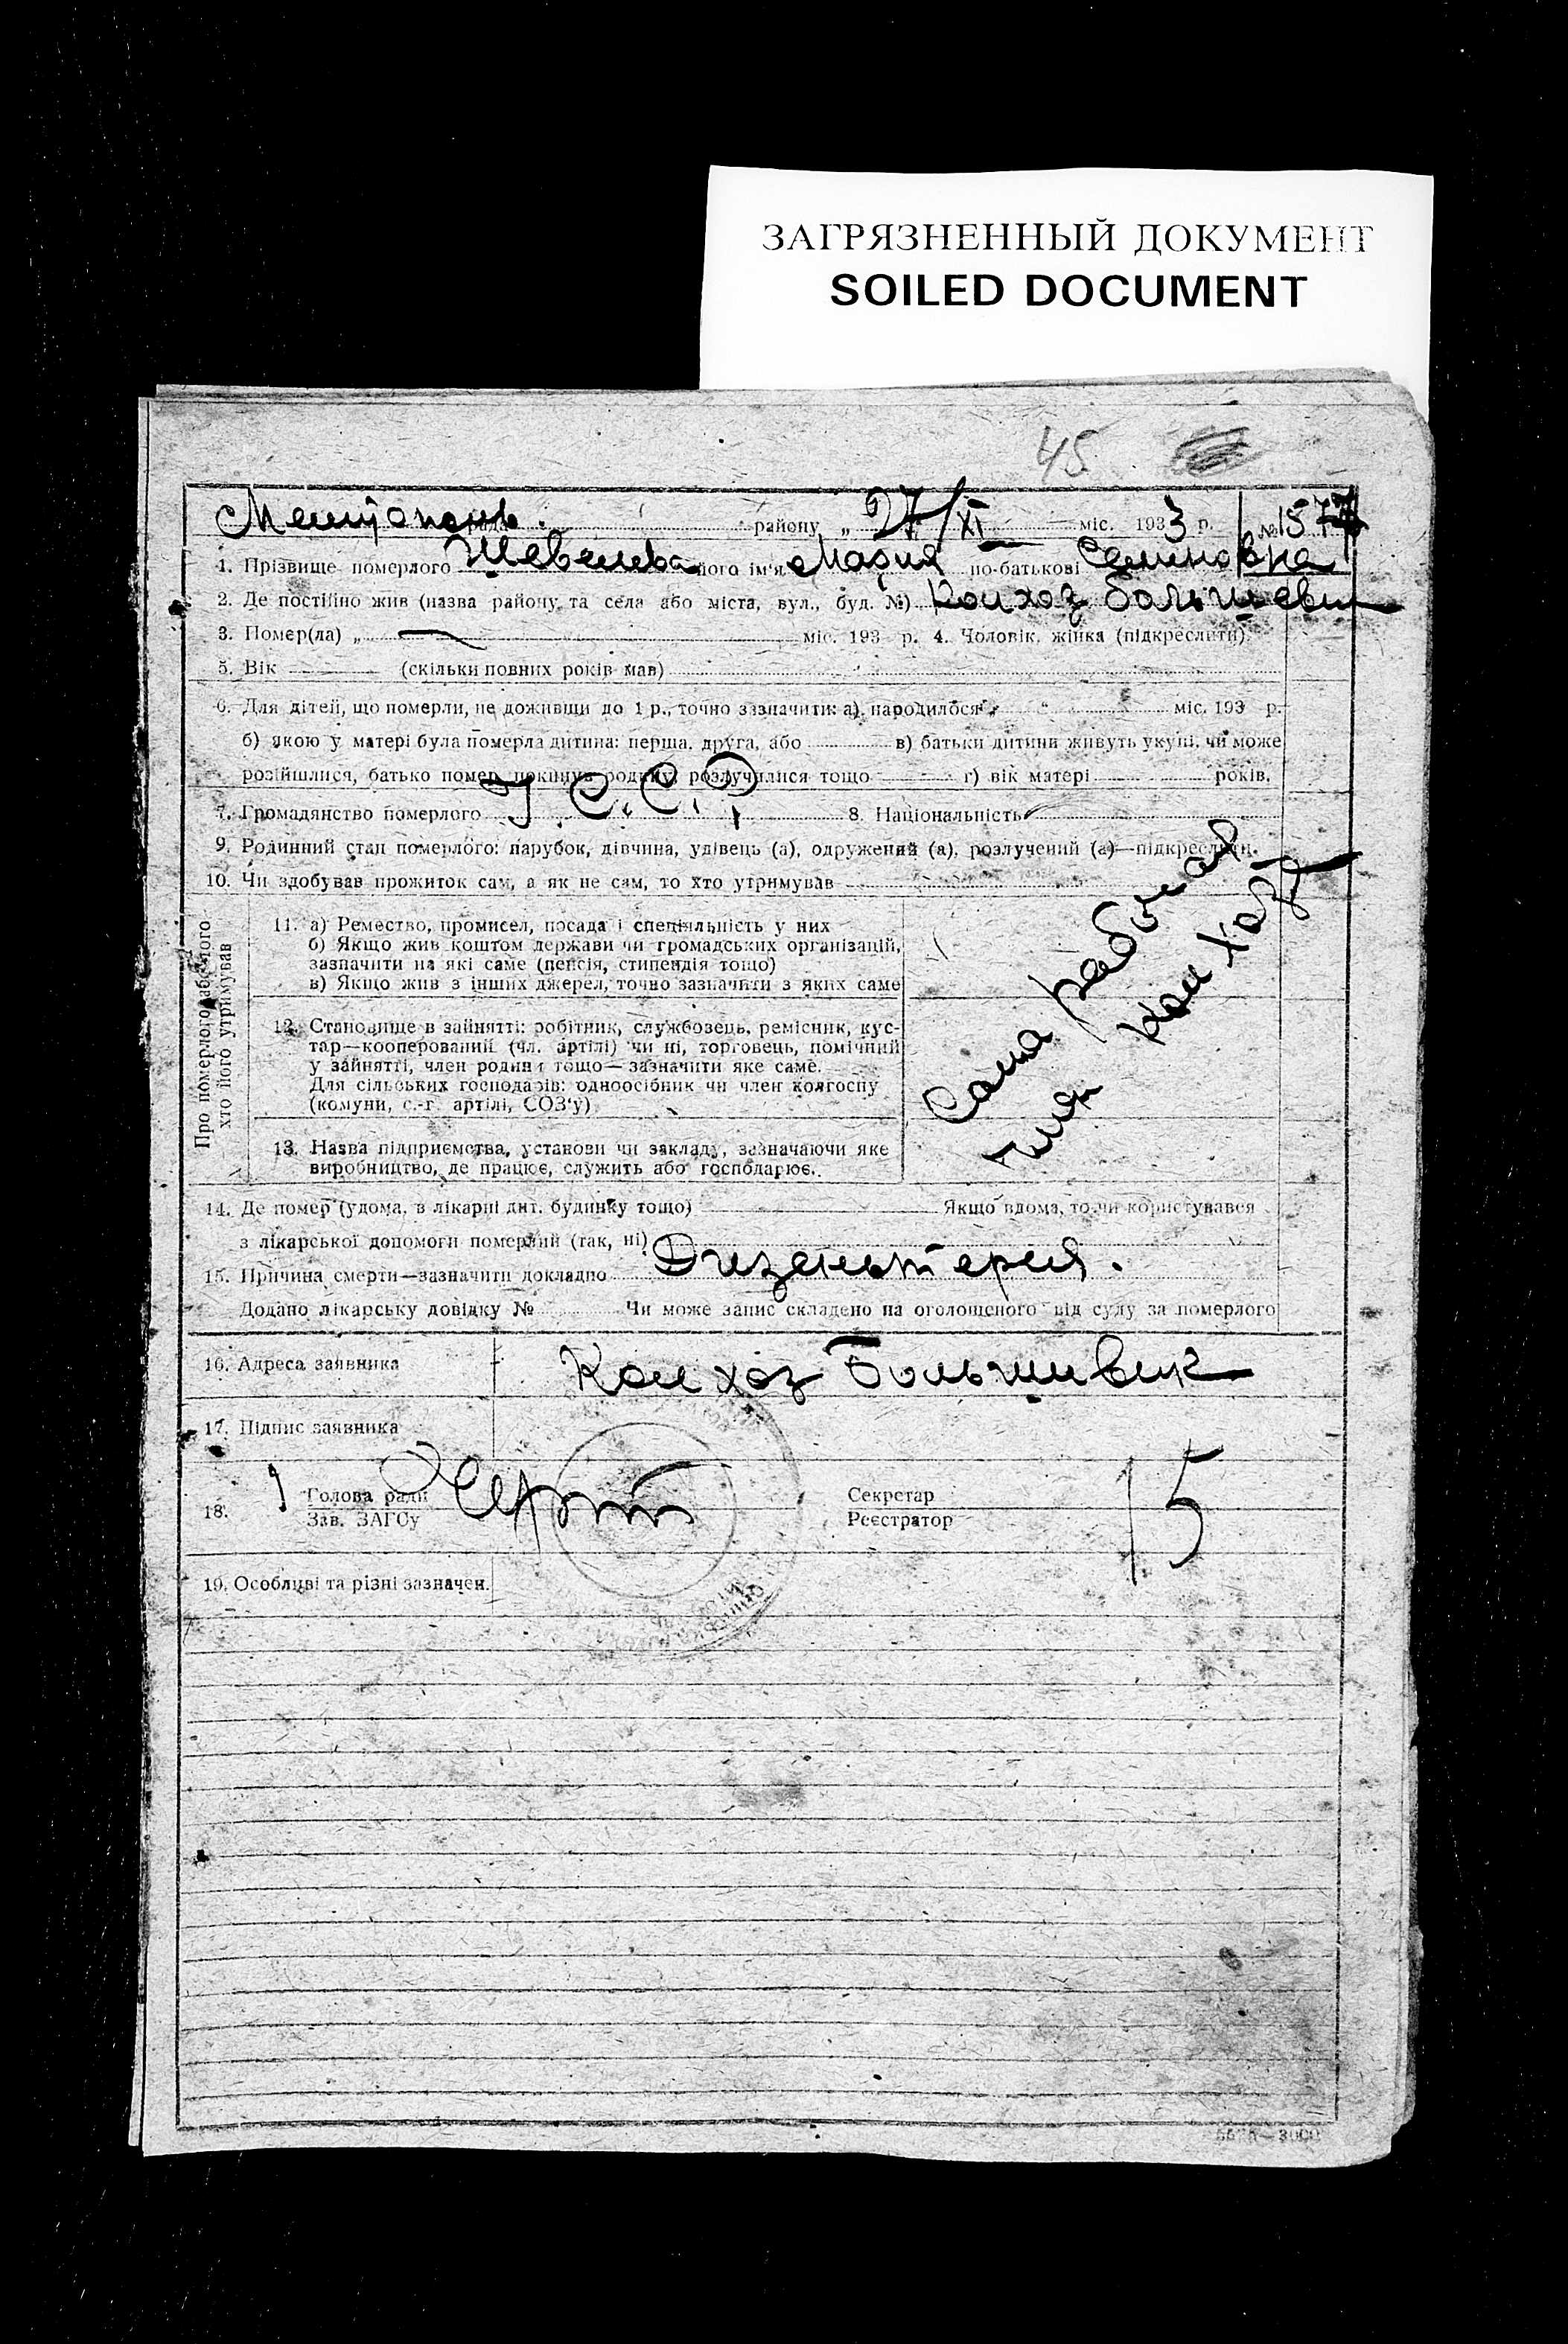 ЗАГРЯЗНЕННЫЙ ДОКУМЕНТ
SOILED DOCUMENT
45
району „ 27/XI міс. 1933 р. № 157
1. Прізвище померлого Шевелева його ім'я Мария по-батькові Семеновна
2. Де постійно жив (назва району та села або міста, вул., буд. №) Колхоз Большевик
3. Помер(ла) „ міс. 193 р. 4. Чоловік, жінка (підкреслити)
5. Вік (скільки повних років мав)
6. Для дітей, що померли, не доживши до 1 р., точно зазначити: а) народилося „ “ міс. 193 р.
б) якою у матері була померла дитина: перша, друга, або в) батьки дитини живуть укупі, чи може
розійшлися, батько помер, покинув родину, розлучилися тощо г) вік матері років.
7. Громадянство померлого У.С.С.Р. 8. Національність
9. Родинний стан померлого: парубок, дівчина, удівець (а), одружений (а), розлучений (а)—підкреслити.
10. Чи здобував прожиток сам, а як не сам, то хто утримував
Про померлого або того хто його утримував
11. а) Ремество, промисел, посада і спеціяльність у них
б) Якщо жив коштом держави чи громадських організацій,
зазначити на які саме (пенсія, стипендія тощо)
в) Якщо жив з інших джерел, точно зазначити з яких саме
12. Становище в зайнятті: робітник, службовець, ремісник, кус-
тар—кооперований (чл. артілі) чи ні, торговець, помічний
у зайнятті, член родини тощо—зазначити яке саме.
Для сільських господарів: одноосібник чи член колгоспу
(комуни, с.-г. артілі, СОЗ'у)
13. Назва підприємства, установи чи закладу, зазначаючи яке
виробництво, де працює, служить або господарює.
Сама работая
член колхоза
14. Де помер (удома, в лікарні дит. будинку тощо) Якщо вдома, то чи користувався
з лікарської допомоги померлий (так, ні)
15. Причина смерти—зазначити докладно Дизентерия.
Додано лікарську довідку № Чи може запис складено на оголошеного від суду за померлого
16. Адреса заявника Колхоз Большивик
17. Підпис заявника
18. Голова ради Секретар
Зав. ЗАГСу Реєстратор
15
19. Особливі та різні зазначен.